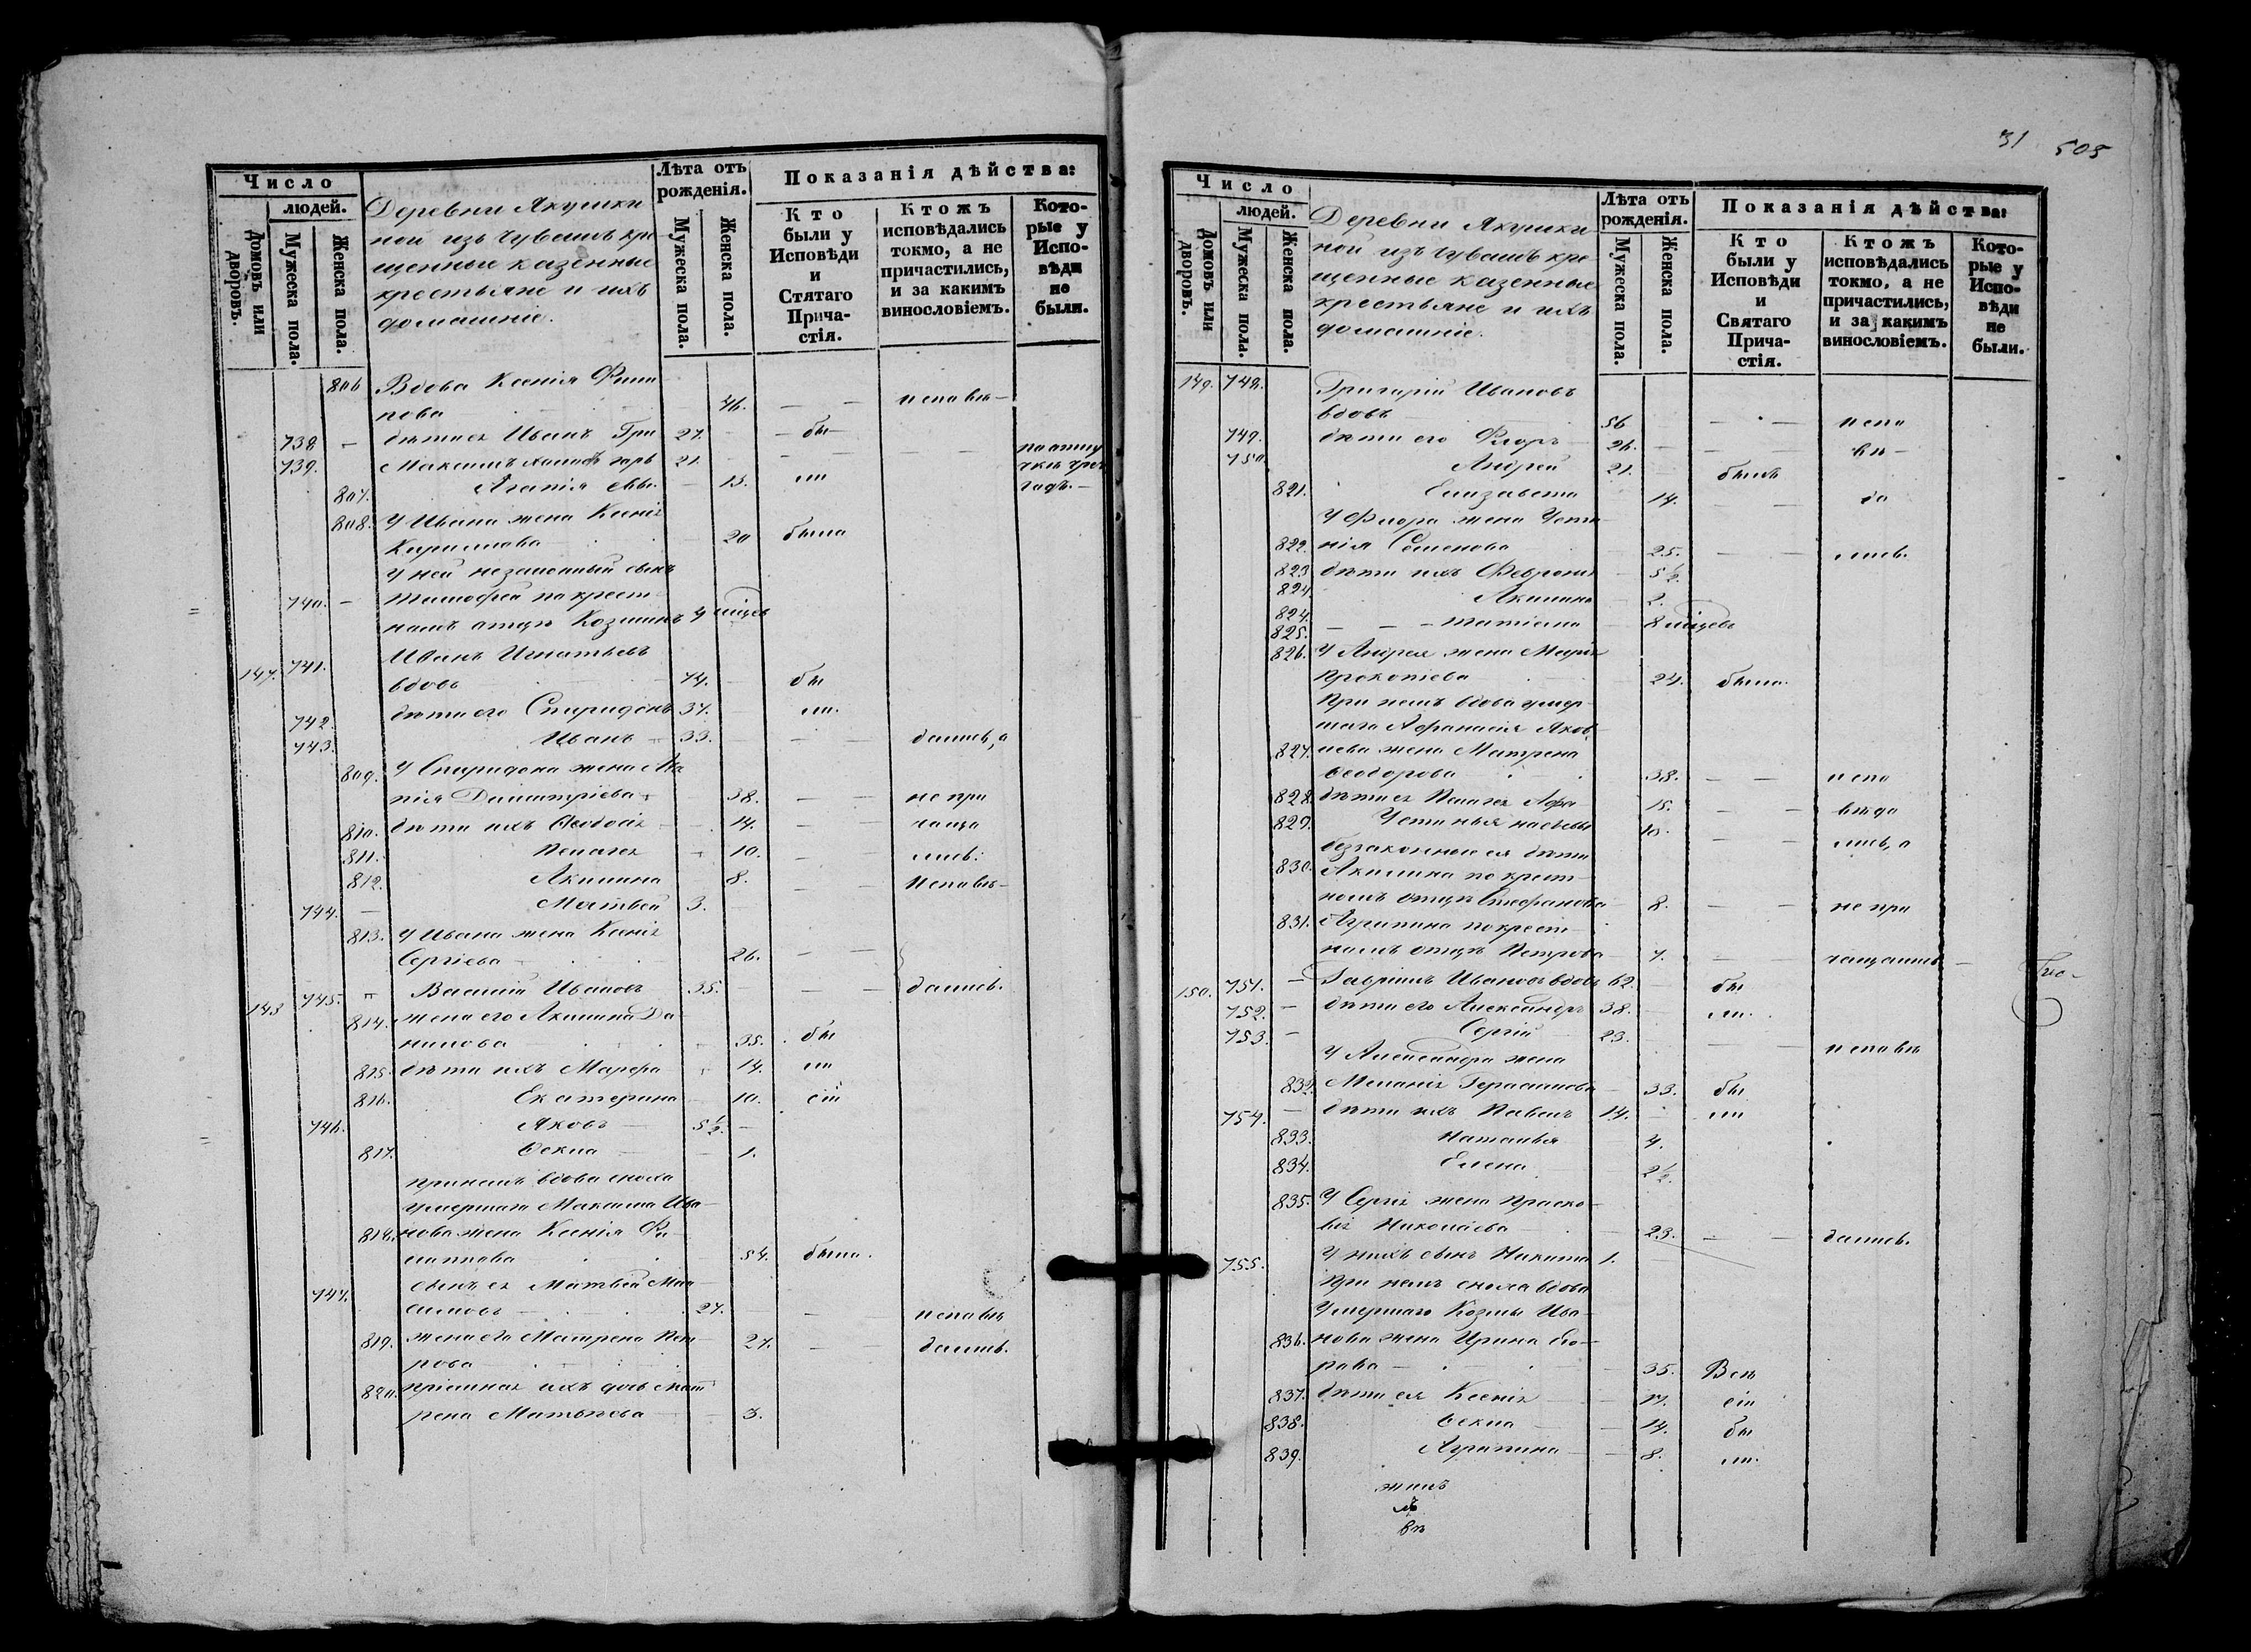 31 505
Число
людей.
Домовъ или дворовъ.
Мужеска пола.
Женска пола.
Деревни Якушки
ной изъ чувашъ кре
щенные казенные
крестьяне и ихъ
домашніе.
Лѣта отъ рожденія.
Мужеска пола.
Женска пола.
Показанія дѣйства:
Кто были у Исповѣди и Стятаго Прича-стія.
Ктожъ исповѣдались токмо, а не причастились, и за какимъ винословіемъ.
Кото-рые у Испо-вѣди не были.
806 Вдова Ксенія Фили
пова 46. исповѣ
738 дѣти ея Иванъ Гри 27. бы
739. Максимъ 21.
807. Агапія 13. ли
808. У Ивана жена Ксенія
Кирилова 20 была
У ней незаконный сынъ
740. Тимофей по крест
номъ отцѣ Козминъ 4 мѣцев
147. 741. Иванъ Игнатьевъ
вдовъ 74. бы
742. дѣти его Спиридонъ 37. ли.
743. Иванъ 33. дались, а
809. У Спиридона жена Ма
нія Димитріева 38. не при
810. дѣти ихъ Ѳеодосія 14. чаща
811. Пелагея 10. лись.
812. Акилина 8. исповѣ
744. Матвей 3.
813. У Ивана жена Ксенія
Сергіева 26.
148 745. Василій Ивановъ 35. дались.
814. жена его Акилина Да
нилова 35. бы
815. дѣти ихъ Марфа 14. ли
816. Екатерина 10. сіи
746. Яковъ 5½.
817. Ѳекла 1.
при немъ вдова сноха
умершаго Максима Ива
818. нова жена Ксенія Фи
липпова 54. была.
747. сынъ ея Матвей Мак
симовъ 27. исповѣ
819. жена его Матрена Пет
рова 27. дались.
820. пріемная ихъ дочь Мат
рена Матвѣева 3.
Число
людей.
Домовъ или дворовъ.
Мужеска пола.
Женска пола.
Деревни Якушки
ной изъ чувашъ кре
щенные казенные
крестьяне и ихъ
домашніе.
Лѣта отъ рожденія.
Мужеска пола.
Женска пола.
Показанія дѣйства:
Кто были у Исповѣди и Святаго Прича-стія.
Ктожъ исповѣдались токмо, а не причастились, и за какимъ винословіемъ.
Кото-рые у Испо-вѣди не были.
149. 748. Григорій Ивановъ
вдовъ 56 испо
749. дѣти его Флоръ 26. вѣ
750 Андрей 21. былъ
821. Елизавета 14. да
У Флора жена Усти
822. нія Семенова 25. лись.
823 дѣти ихъ Февронія 5½.
824. Акилина 2.
824.
825. Татіана 8 мѣцевъ
826. У Андрея жена Марія
Прокопіева 24. была.
При немъ вдова умер
шаго Афанасія Яков
827. лева жена Матрена
Ѳеодорова 38. испо
828. дѣти ея Пелагея Афа 15. вѣда
829. Устинья насьевы 10. лись, а
беззаконные ея дѣти
830. Акилина по крест
номъ отцѣ Стефанова 8. не при
831. Агрипина по крест
номъ отцѣ Петрова 7. чащались
150. 751. Гавріилъ Ивановъ вдовъ 62. бы
752. дѣти его Александръ 38. ли.
753. Сергій 23. исповѣ
У Александра жена
832. Меланія Герасимова 33. бы
754. дѣти ихъ Павелъ 14. ли
833. Наталья 4.
834. Елена 2½.
835. У Сергія жена Праско
вія Николаева 23. дались.
755. У нихъ сынъ Никита 1.
При немъ сноха вдова
умершаго Козмы Ива
836. нова жена Ирина Его
рова 35. Всѣ
837. дѣти ея Ксенія 17. сіи
838. Ѳекла 14. бы
839. Агрипина 8. ли.